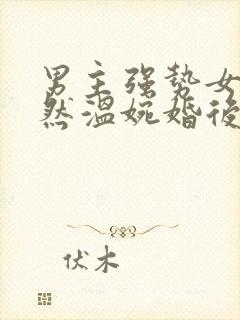 男主强势女
然温婉婚後
伏木